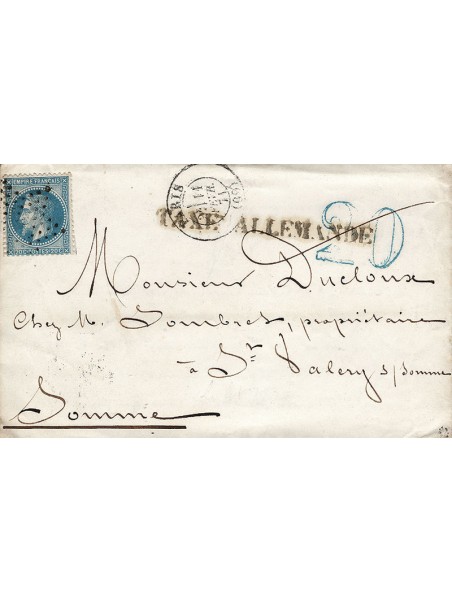 EMPIRE FRANÇAIS
PARIS
(60)
TAXE ALLEMANDE
20
Monsieur Ducloux
Chez M. Sombret, propriétaire
à St Valery s/Somme
Somme